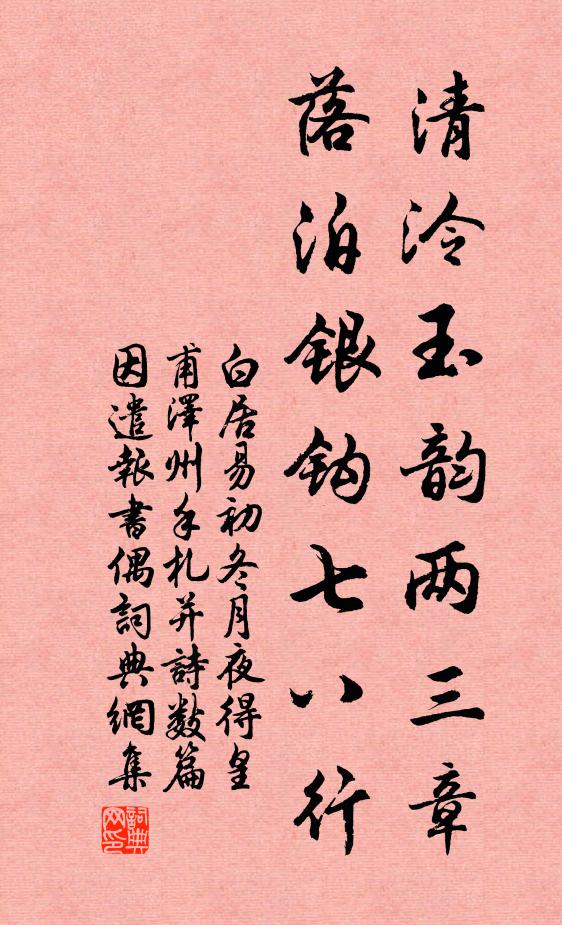 清泠玉韵两三章
落泊银钩七八行
白居易初冬月夜得皇
甫澤州手札并詩数篇
因遣報書偶詞典網集
詞典
网印